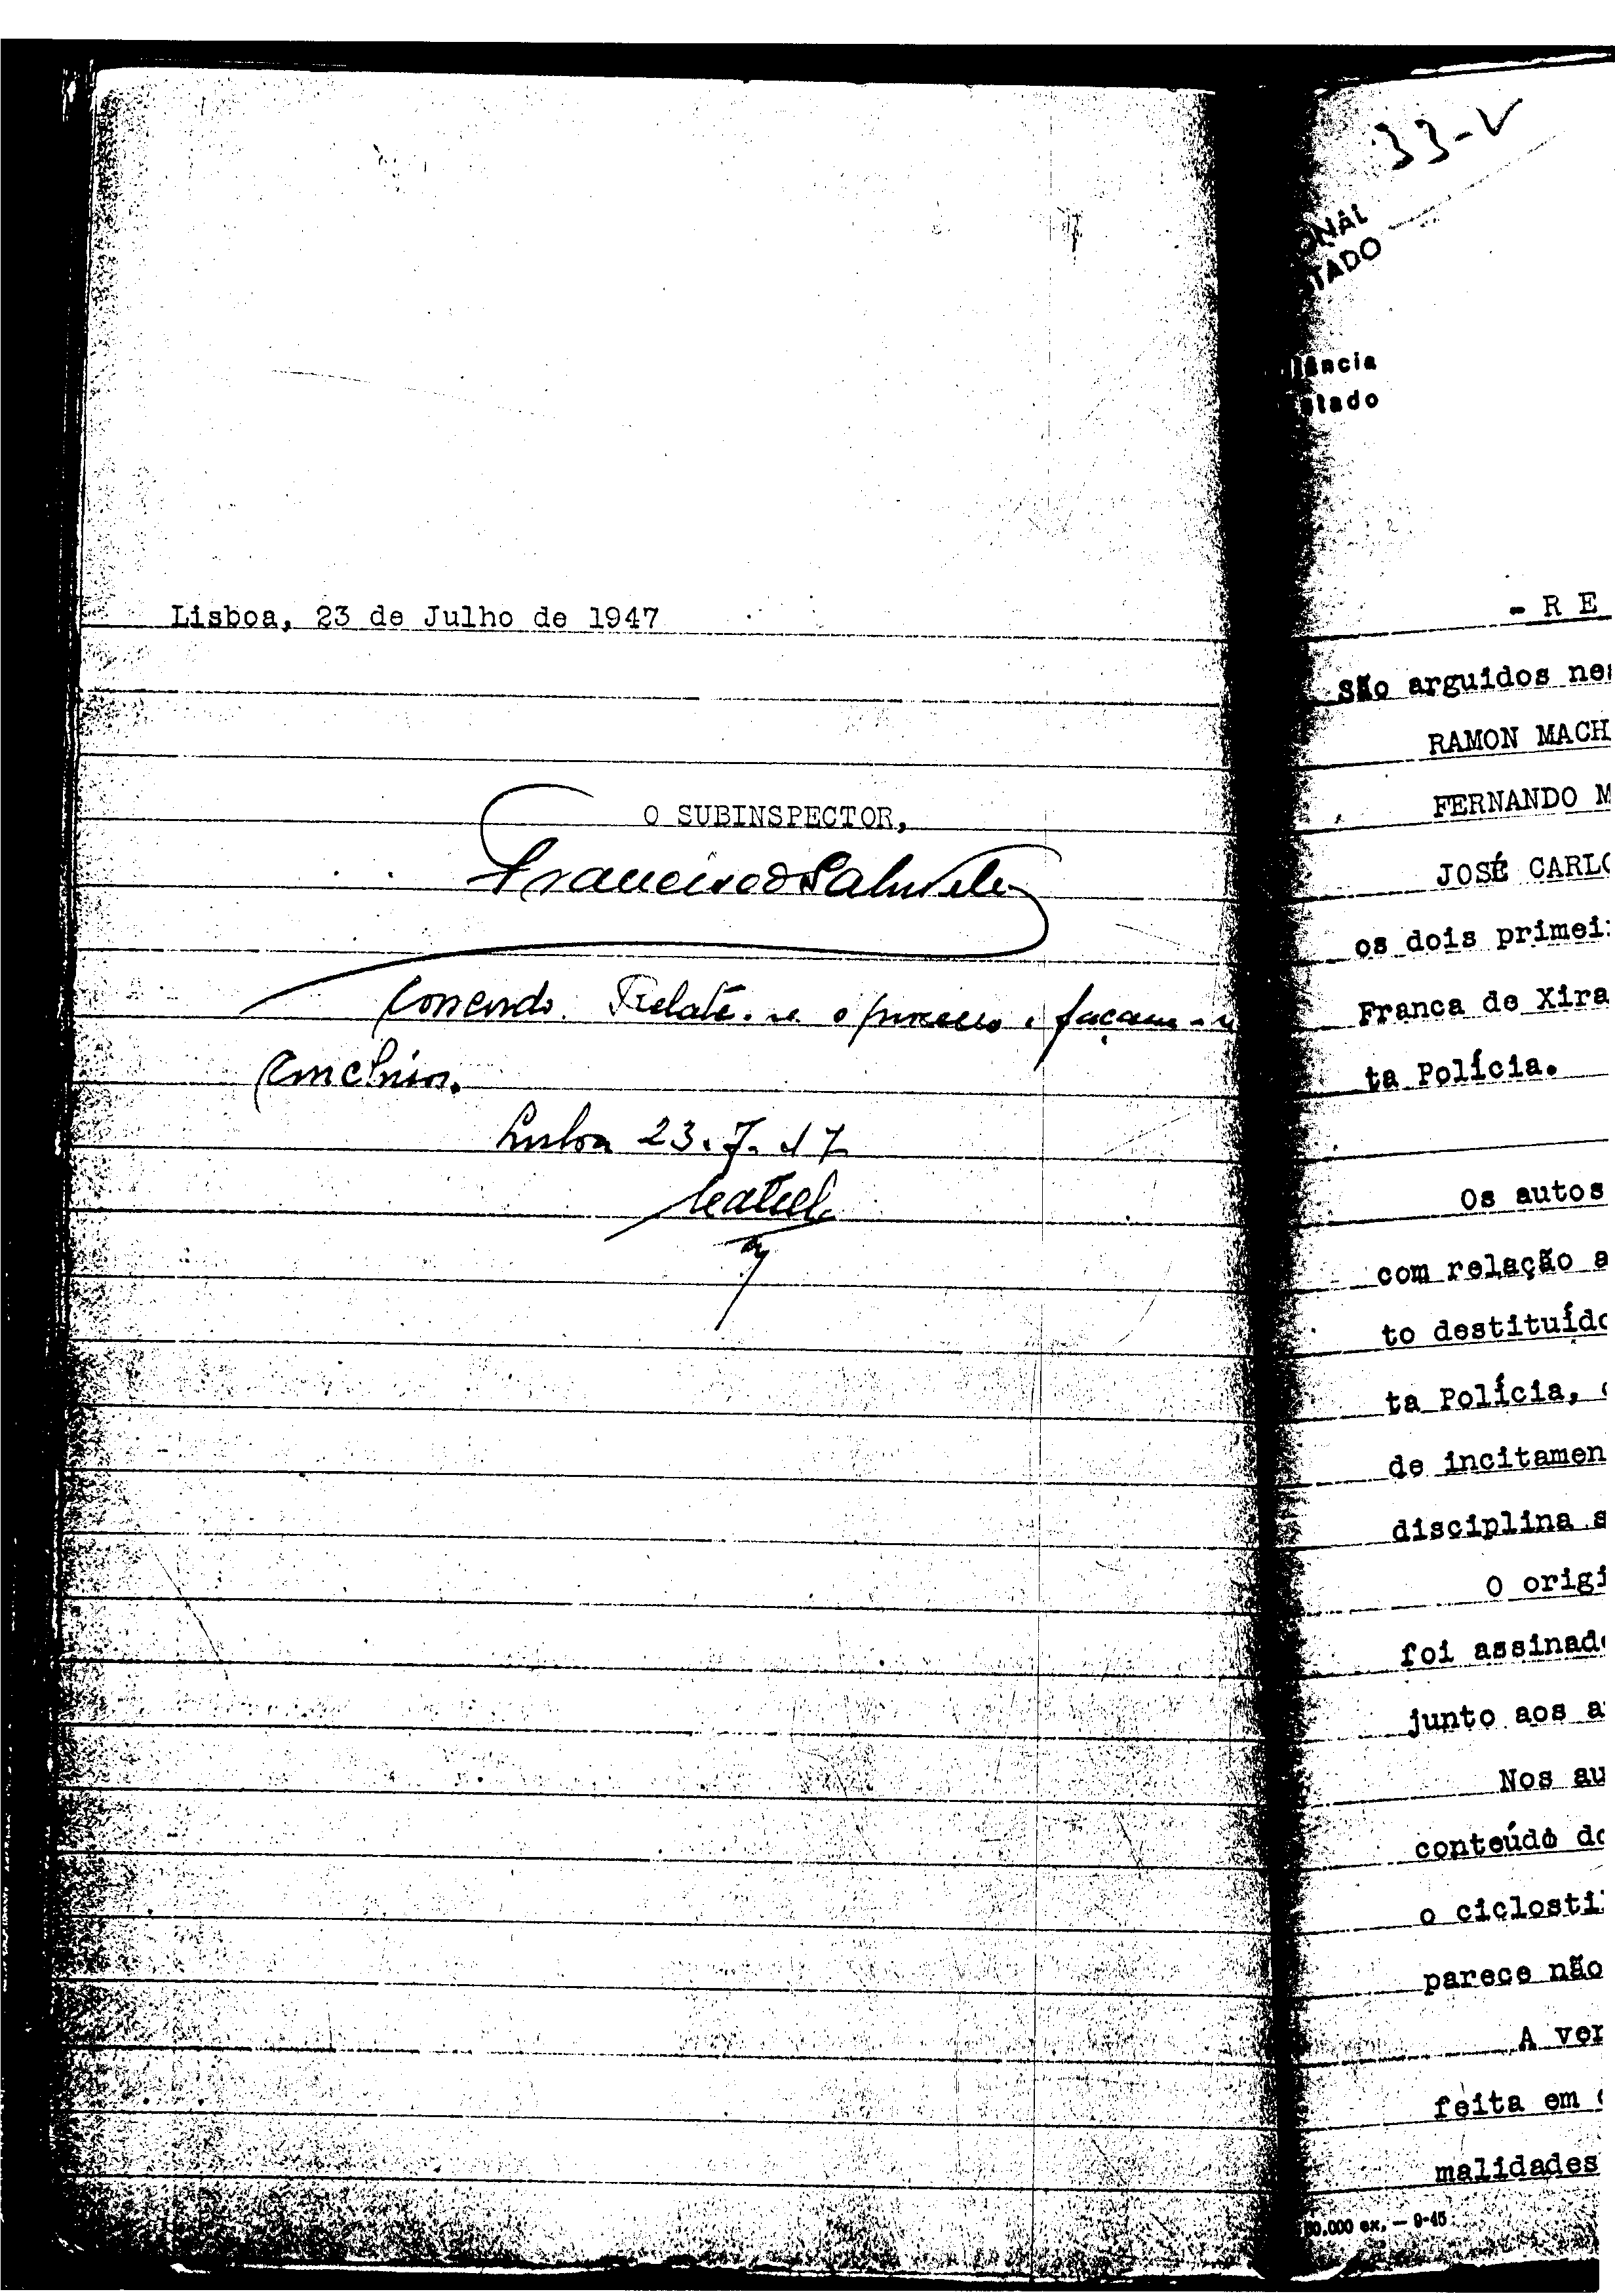 Lisboa, 23 de Julho de 1947
O SUBINSPECTOR,
Concordo. Relate-se o processo e façam-se
conclusos.
Lisboa 23.7.47
33-V
ONAL
TADO
lância
stado
- R E
São arguidos nes
RAMON MACH
FERNANDO M
JOSÉ CARLO
os dois primeir
Franca de Xira
ta Polícia.
Os autos
com relação a
to destituído
ta Polícia,
de incitamen
disciplina s
O origi
foi assinado
junto aos a
Nos au
conteúdo do
o ciclosti
parece não
A ver
feita em
malidades
00.000 ex. — 9-45